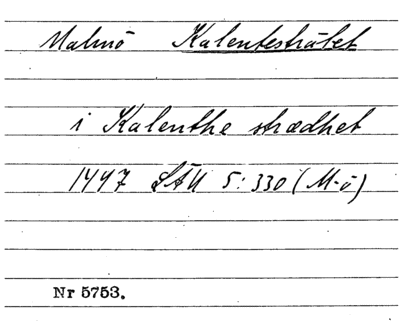 Malmö Kalentesträtet
i Kalenthe strædhet
1447 LÄU 5:330 (M-ö)
Nr 5753.